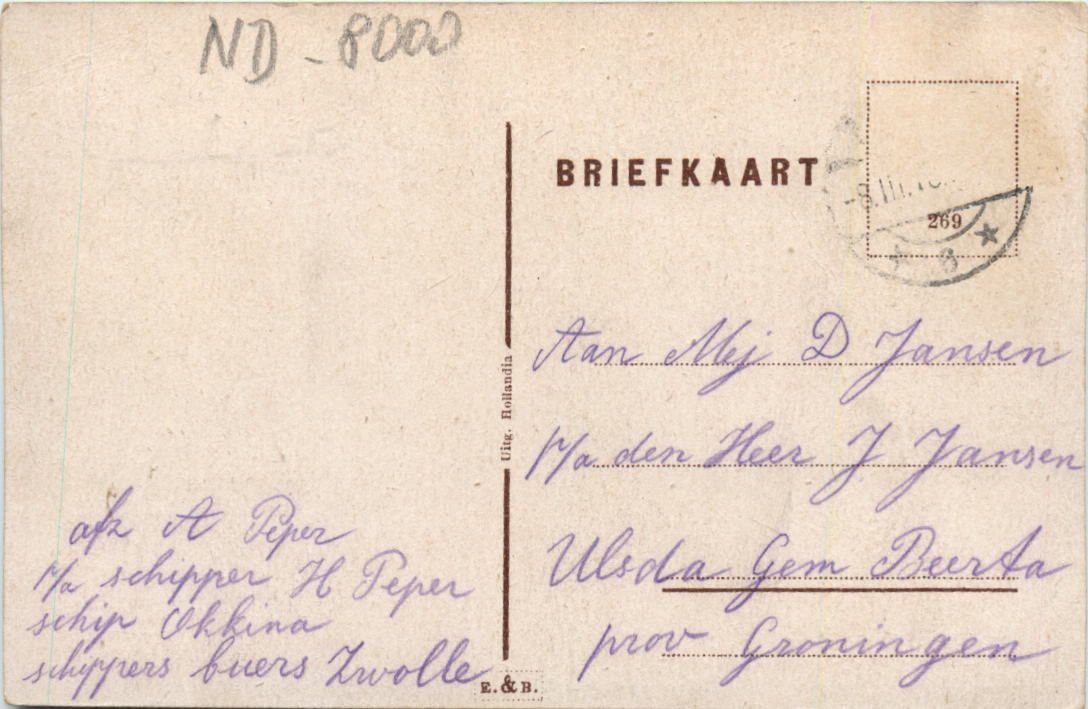 ND - 8000
BRIEFKAART
269
6
Uitg. Hollandia
Aan Mej D Jansen
p/a den Heer J Jansen
Ulsda Gem Beerta
prov Groningen
afz A Peper
p/a schipper H Peper
schip Okkina
schippers buers Zwolle
E. & B.